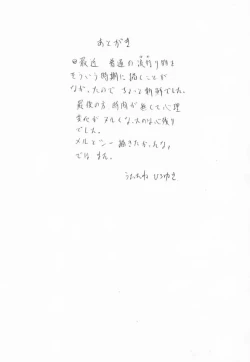 あとがき
最近 普通の流行り物を
そういう時期に描くことが
なかったので ちょっと新鮮でした。
最後の方 時間が無くて心理
変化がヌルくなったのは心残り
でした。
メルとシー描きたかったな。
ではまた。
ひろゆき